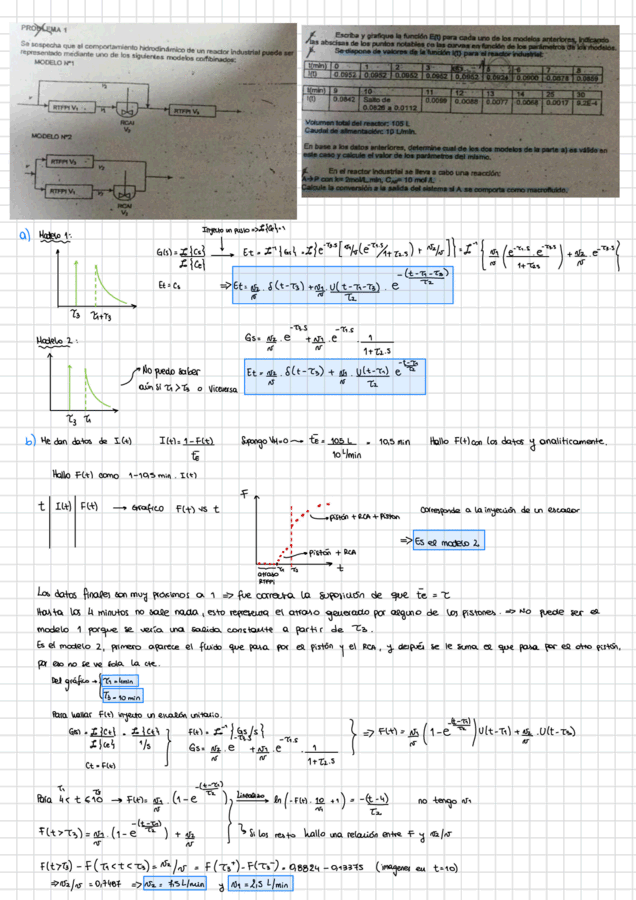 PROBLEMA 1
Se sospecha que el comportamiento hidrodinámico de un reactor industrial puede ser
representado mediante uno de los siguientes modelos combinados:
MODELO Nº1
RTFPI V₃
RCM
V₂
RTFPI V₁
MODELO Nº2
RTFPI V₃
RTFPI V₁
RCM
V₂
Escriba y grafique la función E(t) para cada uno de los modelos anteriores, indicando
las abscisas de los puntos notables de las curvas en función de los parámetros de los modelos.
Se dispone de valores de la función I(t) para el reactor industrial:
t(min) 0 1 2 3 6 7 8
I(t) 0.0952 0.0952 0.0952 0.0952 0.0952 0.0900 0.0878 0.0859
t(min) 9 10 11 12 13 14 25 30
I(t) 0.0842 Salto de 0.0099 0.0088 0.0077 0.0068 0.0017 9.2E-4
0.0826 a 0.0112
Volumen total del reactor: 105 L
Caudal de alimentación: 10 L/min.
En base a los datos anteriores, determine cual de los dos modelos de la parte a) es válido en
este caso y calcule el valor de los parámetros del mismo.
En el reactor industrial se lleva a cabo una reacción:
Calcule la conversión a la salida del sistema si A se comporta como macrofluido.
a) Modelo 1:
Inyecto un pulso => ℒ{Ce}=1
G(s) = ℒ{Cs}/ℒ{Ce} → Et = ℒ⁻¹{Gs} = ℒ⁻¹{e^(-τ3.s) [v1/v (e^(-τ1.s)/1+τ2.s) + v2/v]} = ℒ⁻¹{v1/v (e^(-τ1.s) e^(-τ3.s)/1+τ2s) + v2/v e^(-τ3.s)}
Et = Cs
=> Et = v2/v . δ(t-τ3) + v1/v . U(t-τ1-τ3)/τ2 . e^(-(t-τ1-τ3)/τ2)
τ3 τ1+τ3
Modelo 2:
Gs = v2/v . e^(-τ3.s) + v1/v . e^(-τ1.s) . 1/(1+τ2.s)
No puedo saber
aún si τ1 > τ3 o viceversa
Et = v2/v . δ(t-τ3) + v1/v . U(t-τ1)/τ2 e^(-(t-τ1)/τ2)
τ3 τ1
b) Me dan datos de I(t) I(t) = 1-F(t)/t̄E Supongo VM=0 → t̄E = 105 L/10 L/min = 10,5 min Hallo F(t) con los datos y analiticamente.
Hallo F(t) como 1-10,5 min . I(t)
t | I(t) | F(t) → Grafico F(t) vs t
F
pistón + RCA + Piston
pistón + RCA
atraso
RTFPI
τ1 τ3 t
corresponde a la inyección de un escalón
=> Es el modelo 2
Los datos finales son muy próximos a 1 => fue correcta la suposición de que t̄E = τ
Hasta los 4 minutos no sale nada, esto representa el atraso generado por alguno de los pistones. => No puede ser el
modelo 1 porque se vería una salida constante a partir de τ3.
Es el modelo 2, primero aparece el fluido que pasa por el pistón y el RCA, y después se le suma el que pasa por el otro pistón,
por eso no se ve sola la cte.
Del gráfico → τ1 = 4min
τ3 = 10 min
Para hallar F(t) inyecto un escalón unitario.
G(s) = ℒ{Ct}/ℒ{Ce} = ℒ{Ct}/1/s F(t) = ℒ⁻¹{Gs/s}
Gs = v2/v . e^(-τ3.s) + v1/v . e^(-τ1.s) . 1/(1+τ2.s) => F(t) = v1/v (1-e^(-(t-τ1)/τ2)) U(t-τ1) + v2/v . U(t-τ3)
Ct = F(t)
Para 4 < t ≤ 10 → F(t) = v1/v . (1-e^(-(t-τ1)/τ2)) Linealizo → ln(-F(t) . 10/v1 + 1) = -(t-4)/τ2 no tengo v1
F(t>τ3) = v1/v . (1-e^(-(t-τ1)/τ2)) + v2/v
Si los resto hallo una relación entre F y v2/v
F(t>τ3) - F(τ1<t<τ3) = v2/v = F(τ3⁺) - F(τ3⁻) = 0,8824 - 0,13375 (imagenes en t=10)
=> v2/v = 0,7487 => v2 = 7,5 L/min y v1 = 2,5 L/min